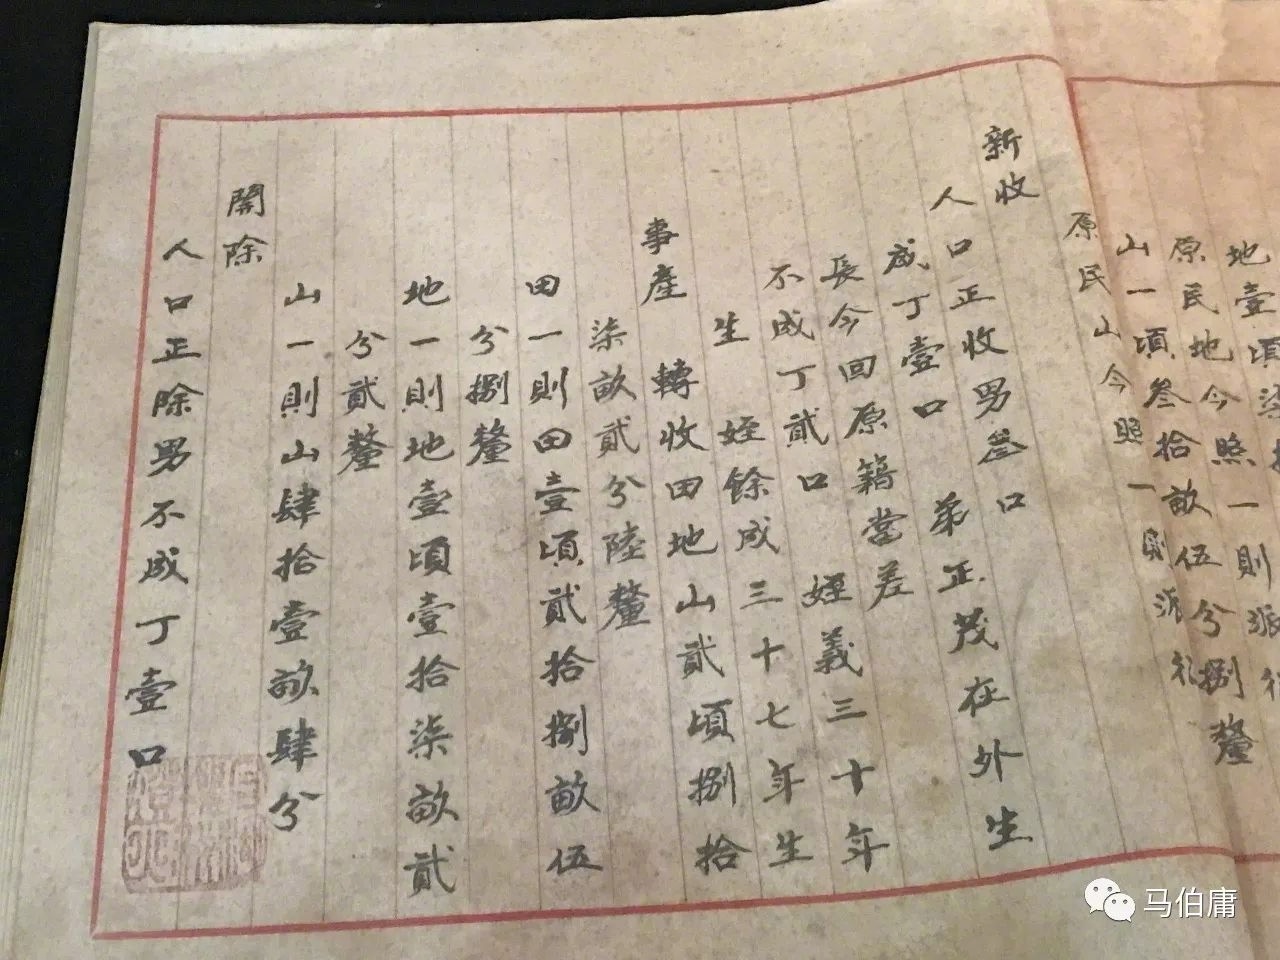 地壹頃柒拾
原民地今照一則派
山一頃叁拾畝伍兮捌釐
原民山今照一則派
新收
人口正收男叁口
成丁壹口 弟正茂在外生
長今回原籍當差
不成丁貳口 姪義三十年
生 姪餘成三十七年生
事產 轉收田地山貳頃捌拾
柒畝貳兮陸釐
田一則田壹頃貳拾捌畝伍
兮捌釐
地一則地壹頃壹拾柒畝貳
兮貳釐
山一則山肆拾壹畝肆兮
開除
人口正除男不成丁壹口
马伯庸